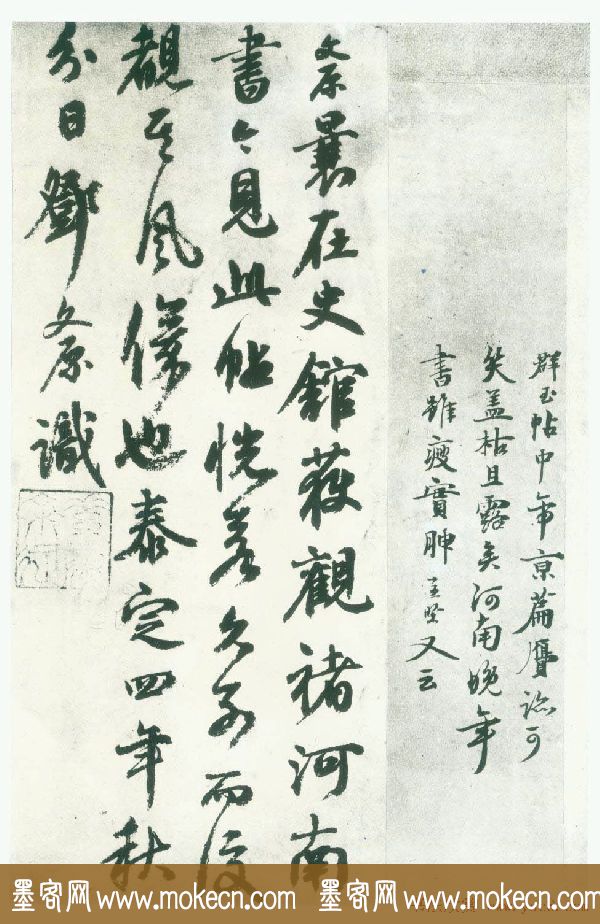 群玉帖中帝京篇贋迹可
笑盖枯且露矣河南晚年
書雖瘦實腴 又云
文原曩在史館獲觀褚河南
書今見此帖恍若久别而復
觀其風儀也泰定四年秋
分日鄧文原識
墨客网 www.mokecn.com 墨客网 www.mokecn.com